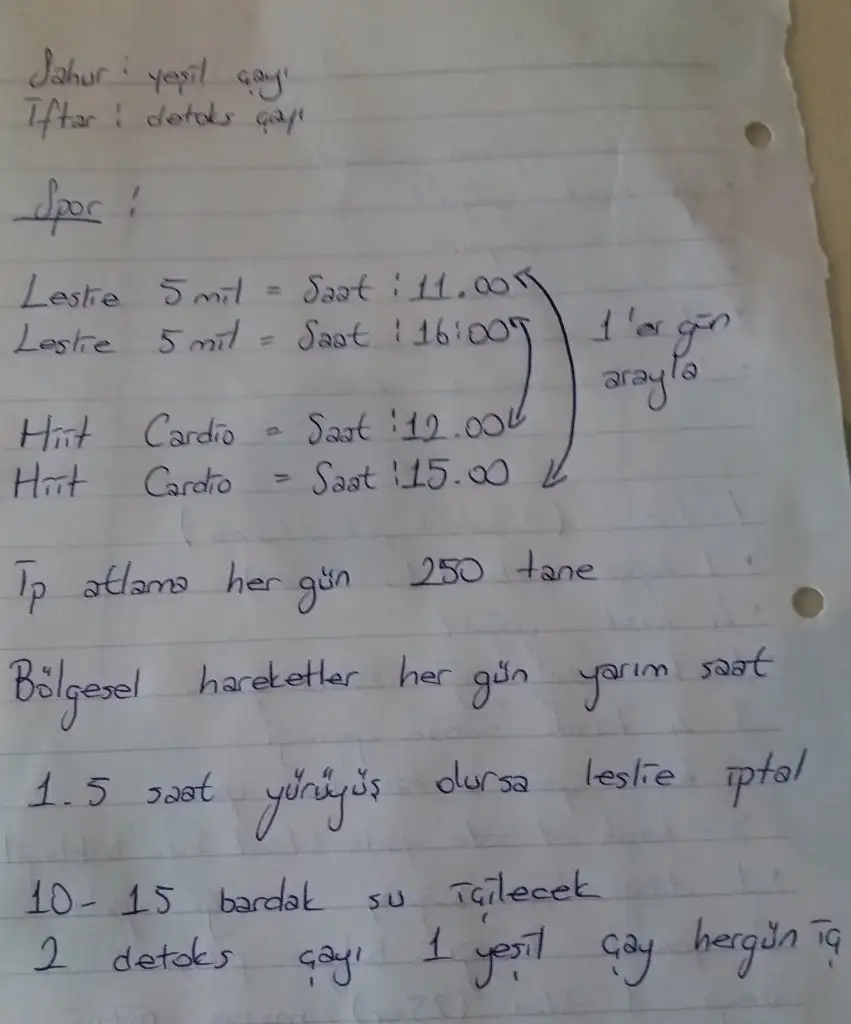 Sahur : yeşil çayı
İftar : detoks çayı
Spor :
Leslie 5 mil = Saat : 11.00
Leslie 5 mil = Saat : 16:00
1'er gün
arayla
Hiit Cardio = Saat : 12.00
Hiit Cardio = Saat : 15.00
İp atlama her gün 250 tane
Bölgesel hareketler her gün yarım saat
1.5 saat yürüyüş olursa leslie iptal
10-15 bardak su içilecek
2 detoks çayı 1 yeşil çay hergün iç